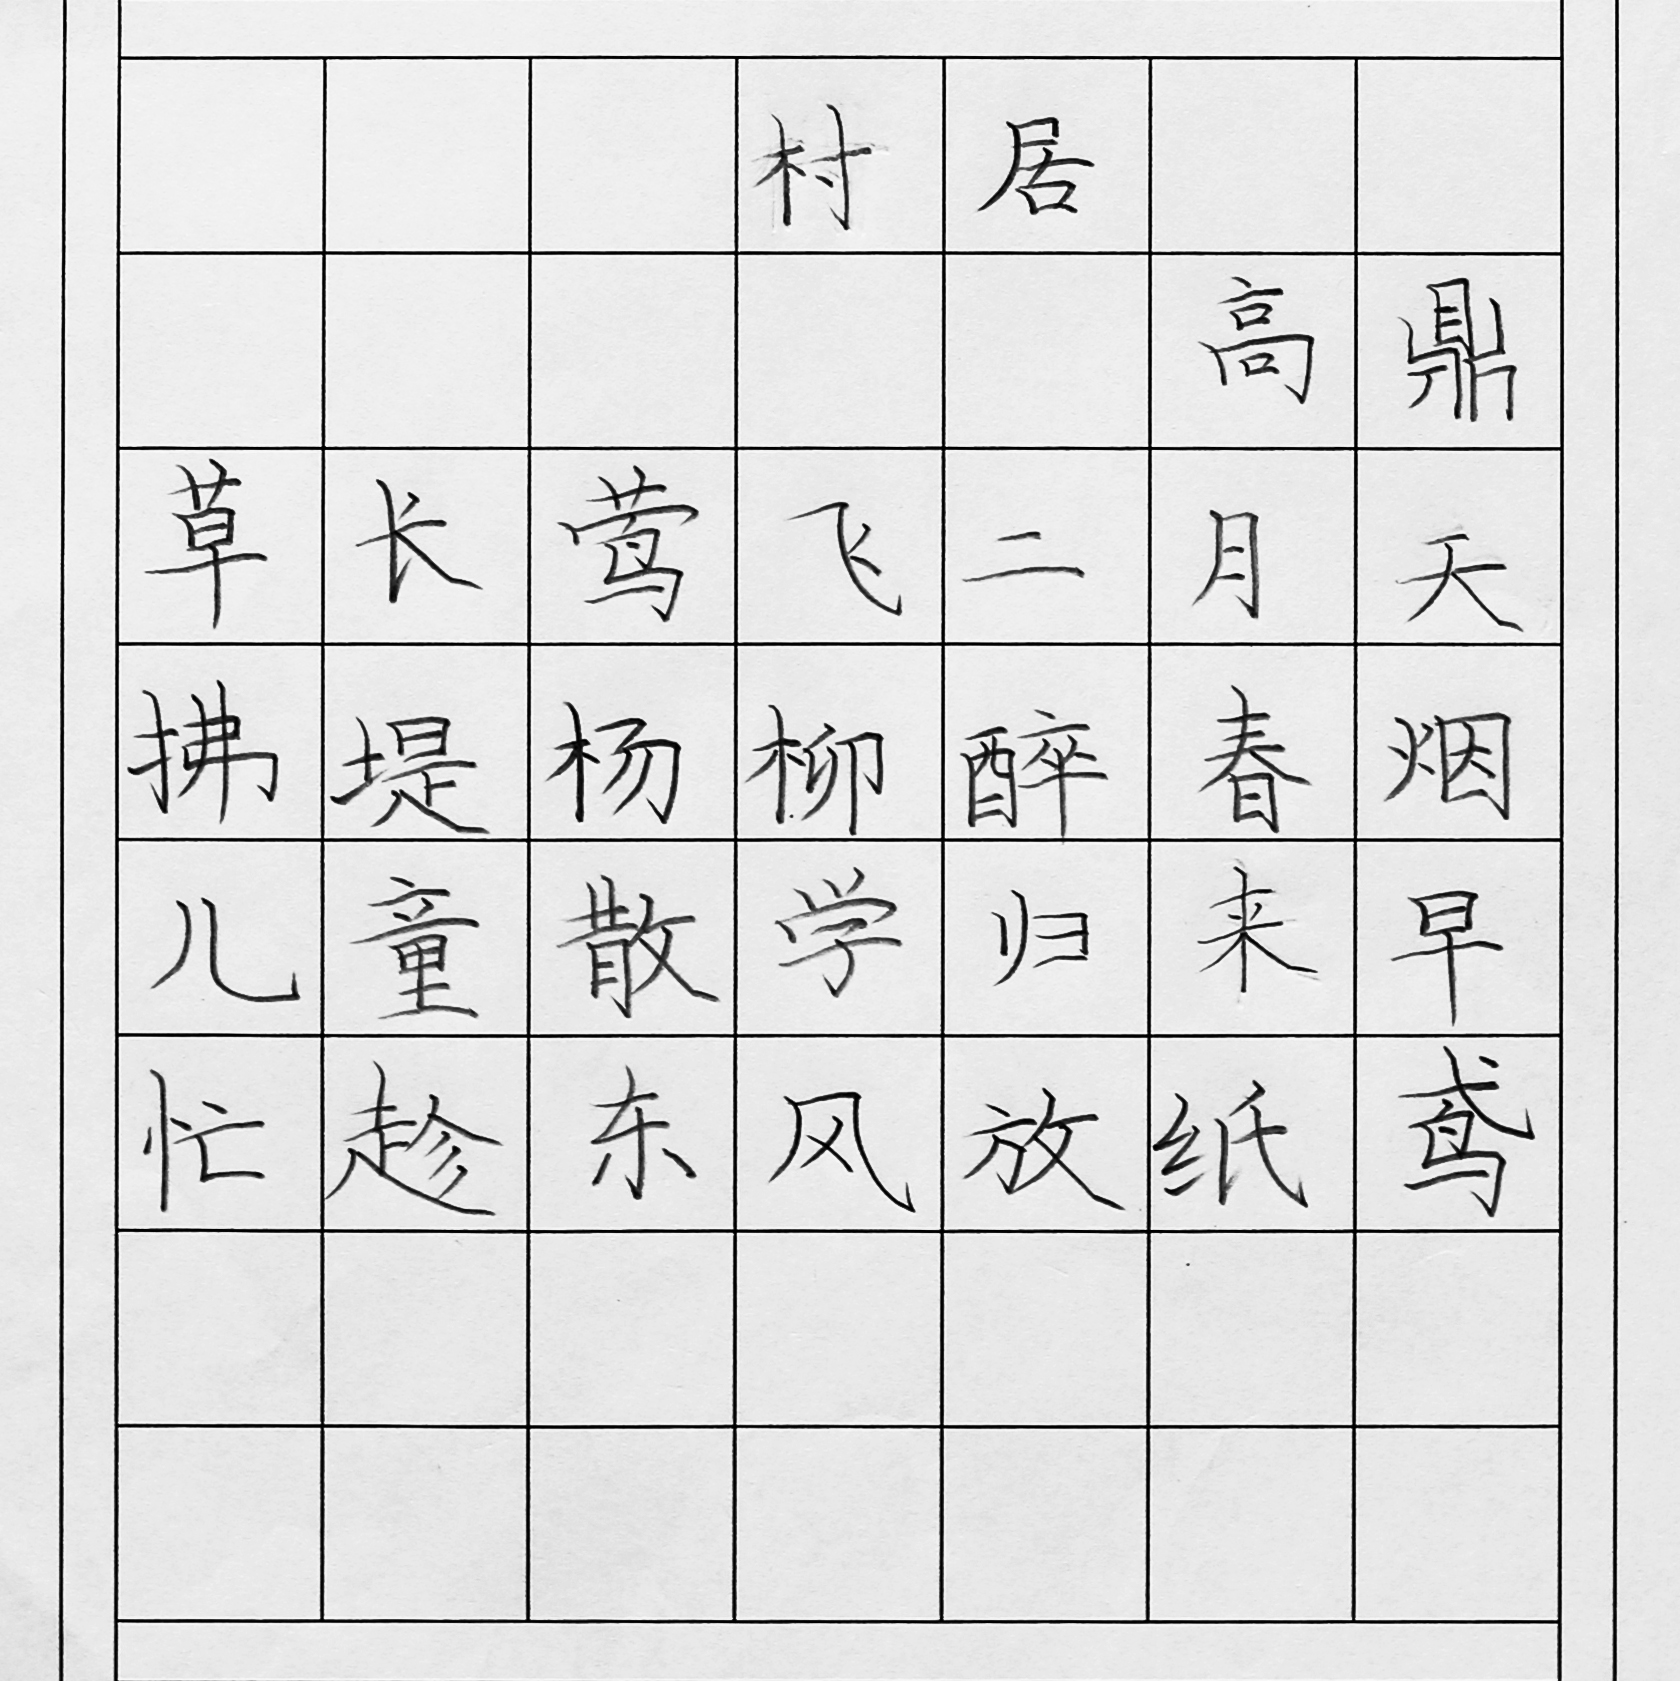 村居
高鼎
草长莺飞二月天
拂堤杨柳醉春烟
儿童散学归来早
忙趁东风放纸鸢